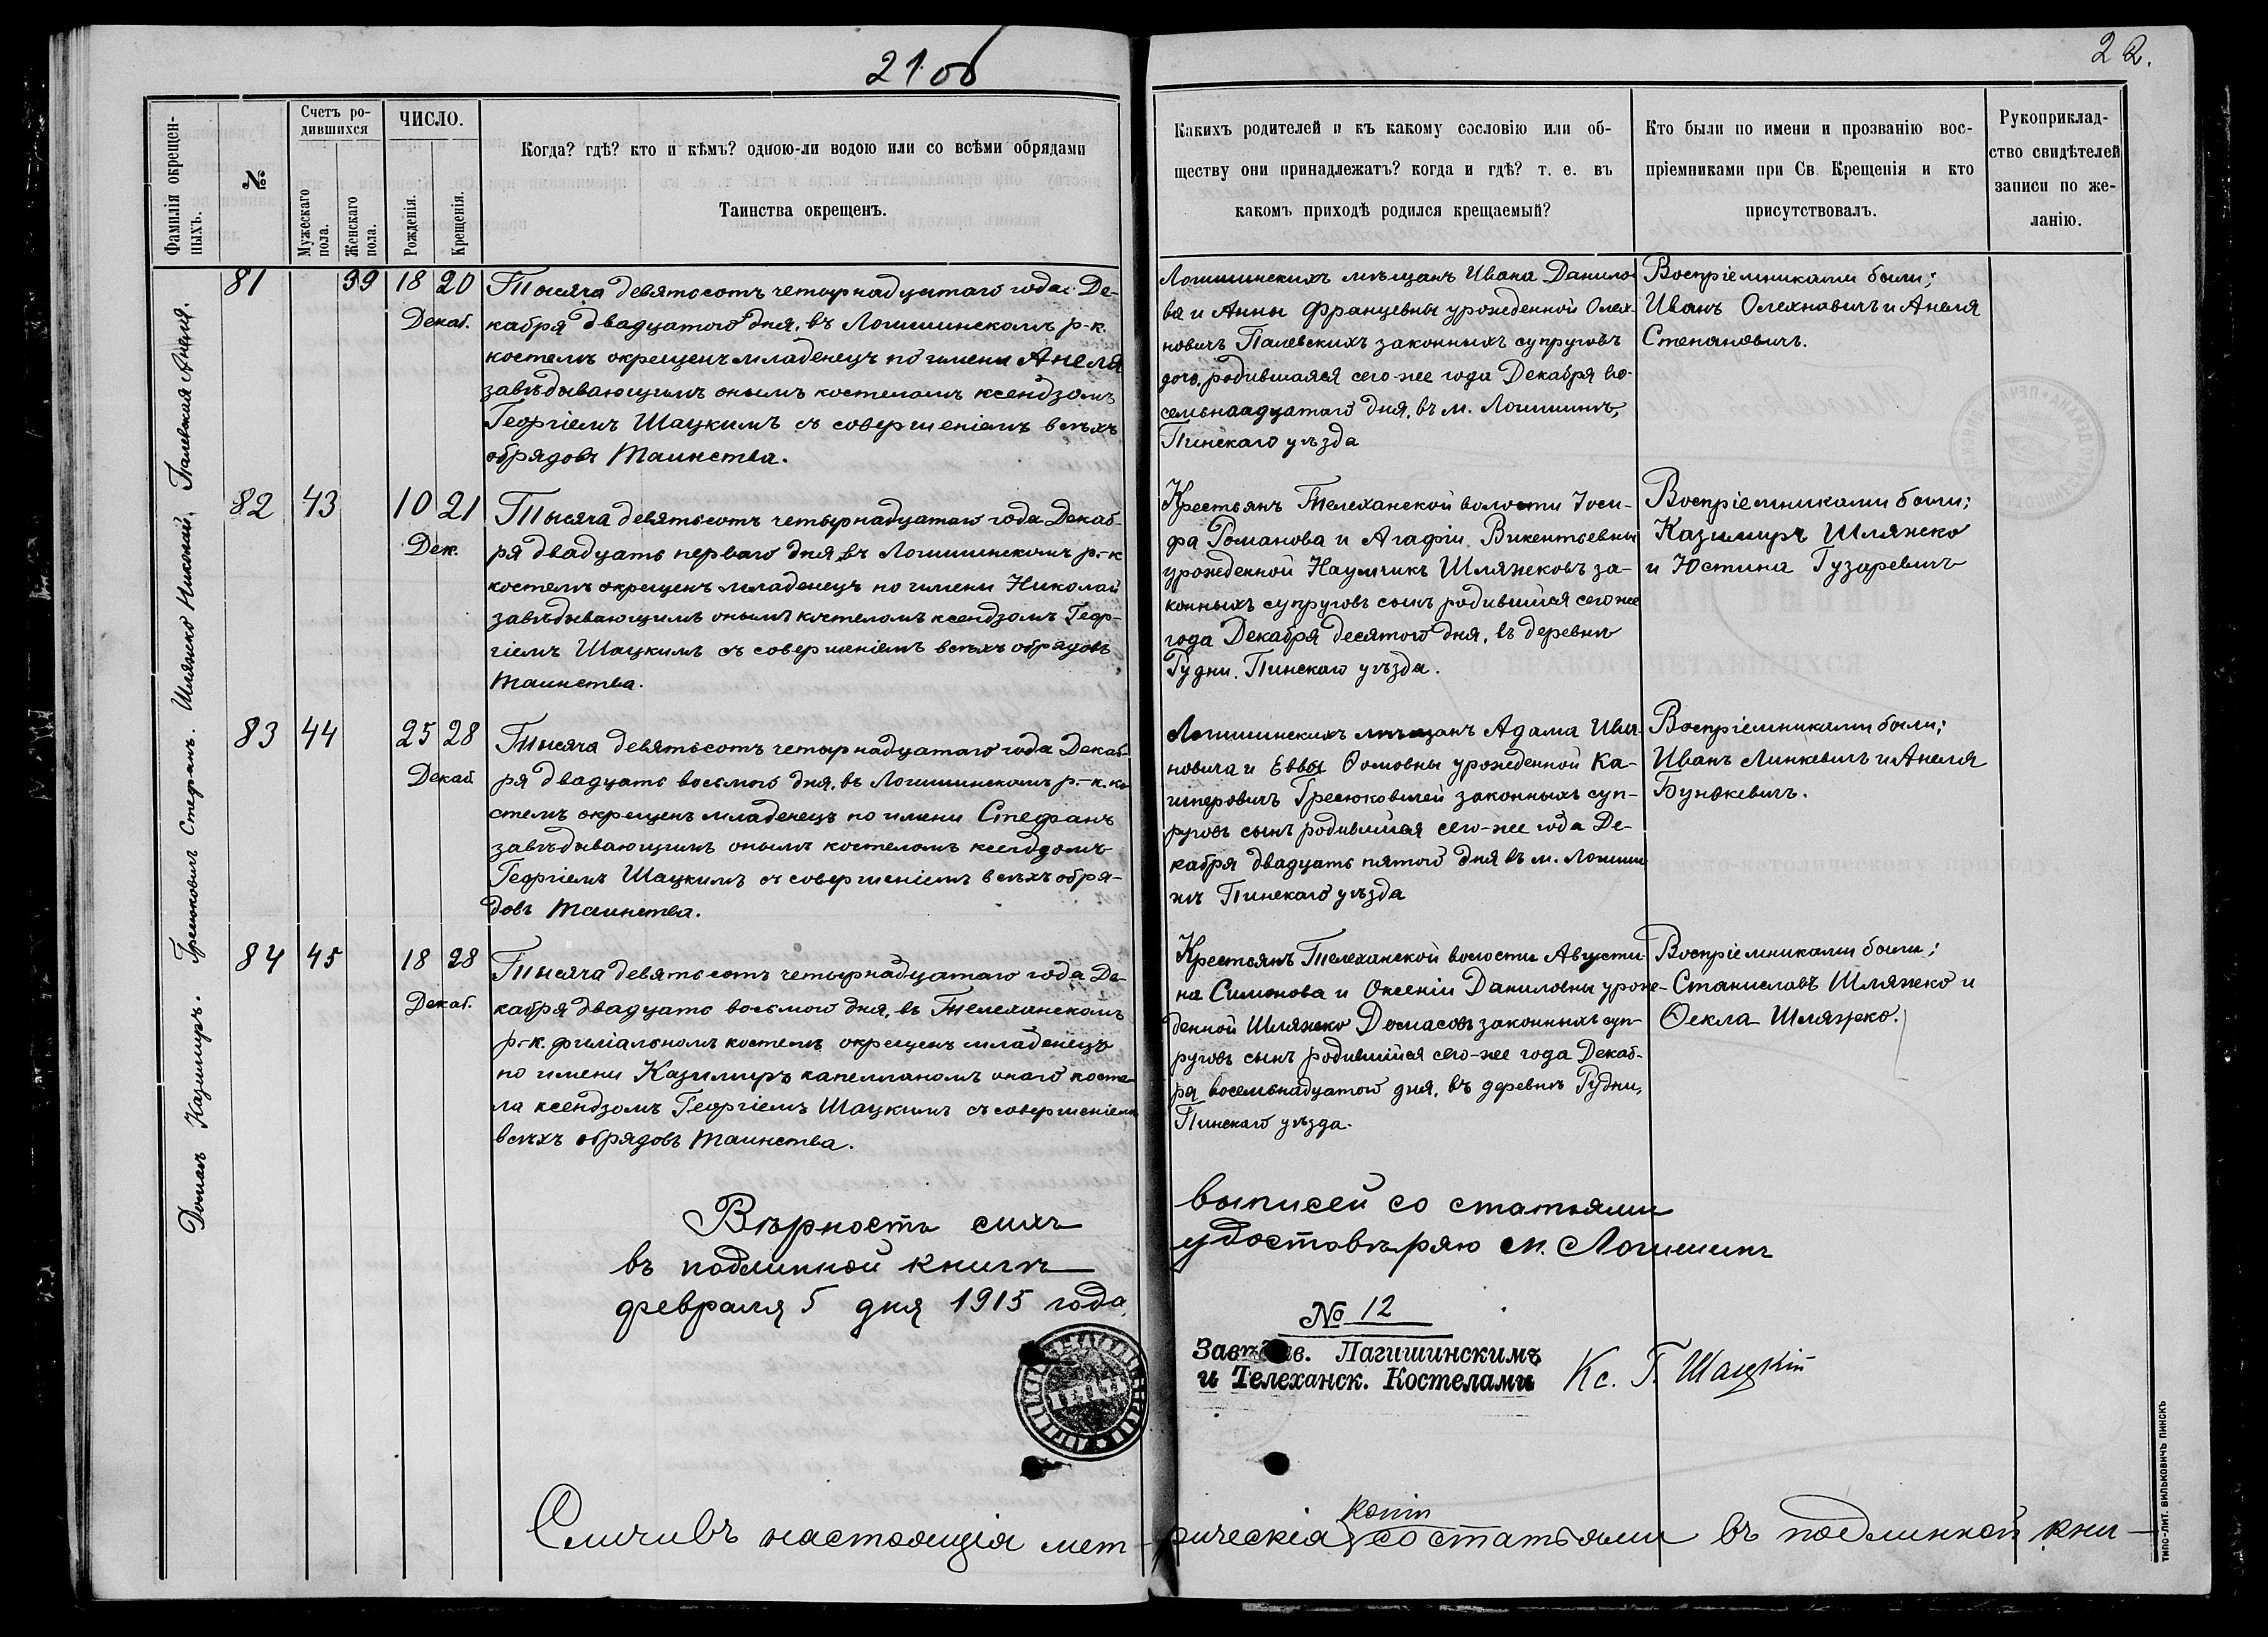 21 об
22.
Фамилія окрещен-
ныхъ.
№
Счетъ ро-
дившихся
Мужескаго
пола.
Женскаго
пола.
ЧИСЛО.
Рожденія.
Крещенія.
Когда? гдѣ? кто и кѣмъ? одною-ли водою или со всѣми обрядами
Таинства окрещенъ.
Какихъ родителей и къ какому сословію или об-
ществу они принадлежатъ? когда и гдѣ? т. е. въ
какомъ приходѣ родился крещаемый?
Кто были по имени и прозванію вос-
пріемниками при Св. Крещеніи и кто
присутствовалъ.
Рукоприклад-
ство свидѣтелей
записи по же-
ланію.
Палевская Анеля.
81 39 18 20
Декаб.
Тысяча девятосотъ четырнадцатаго года Де-
кабря двадцатого дня, въ Логишинскомъ р-к.
костелѣ окрещенъ младенецъ по имени Анеля
завѣдывающимъ онымъ костеломъ ксендзомъ
Георгіемъ Шацкимъ съ совершеніемъ всѣхъ
обрядовъ Таинства.
Логишинскихъ мѣщанъ Ивана Данило-
ва и Анны Францевны урожденной Олех-
новичъ Палевскихъ законныхъ супруговъ
доч. родившаяся сего-же года Декабря во-
семьнаадцатаго дня, въ м. Логишинѣ,
Пинскаго уѣзда
Воспріемниками были;
Иванъ Олехновичъ и Анеля
Степановичъ.
Шляжко Николай.
82 43 10 21
Дек.
Тысяча девятьсотъ четырнадцатаго года Декаб-
ря двадцать перваго дня, въ Логишинскомъ р.-к
костелѣ окрещенъ младенецъ по имени Николай
завѣдывающимъ онымъ костеломъ ксендзомъ Геор-
гіемъ Шацкимъ съ совершеніемъ всѣхъ обрядовъ
Таинства.
Крестьянъ Телеханской волости Іоси-
фа Романова и Агафіи Викентьевны
урожденной Наумчикъ Шляжковъ за-
конныхъ супруговъ сынъ родившійся сего же
года Декабря десятого дня, въ деревнѣ
Рудни, Пинскаго уѣзда.
Воспріемниками были;
Казимиръ Шляжко
и Юстина Гузаревичъ
Гресюковичъ Стефанъ.
83 44 25 28
Декаб.
Тысяча девятьсотъ четырнадцатаго года Декаб-
ря двадцать восьмого дня, въ Логишинскомъ р.-к. ко
стелѣ окрещенъ младенецъ по имени Стефанъ
завѣдывающимъ онымъ костеломъ ксендзомъ
Георгіемъ Шацкимъ съ совершеніемъ всѣхъ обря-
довъ Таинства.
Логишинскихъ мѣщанъ Адама Ива-
новича и Еввы Ѳомовны урожденной Ка-
шперовичъ Гресюковичей законныхъ суп-
руговъ сынъ родившійся сего-же года Де-
кабря двадцать пятого дня въ м. Логиши-
нѣ Пинскаго уѣзда
Воспріемниками были;
Иванъ Линкевичъ и Анеля
Бунякевичъ.
Домасъ Казимиръ.
84 45 18 28
Декаб.
Тысяча девятьсотъ четырнадцатаго года Де-
кабря двадцать восьмого дня, въ Телеханскомъ
р.-к. филіальномъ костелѣ окрещенъ младенецъ
по имени Казимиръ капелланомъ онаго косте-
ла ксендзомъ Георгіемъ Шацкимъ съ совершеніемъ
всѣхъ обрядовъ Таинства.
Крестьянъ Телеханской волости Августи-
на Симонова и Оксеніи Даниловны урож-
денной Шляжко Домасовъ законныхъ суп-
руговъ сынъ родившійся сего-же года Декаб-
ря восемьнадцатого дня, въ деревнѣ Рудни,
Пинскаго уѣзда.
Воспріемниками были;
Станиславъ Шляжко и
Ѳекла Шляжко.
Вѣрность сихъ выписей со статьями
въ подлинной книгѣ удостовѣряю м. Логишинъ
февраля 5 дня 1915 года
№ 12
Завѣдыв. Лагишинскимъ
и Телеханск. Костелами Кс. Г. Шацкій
Сличивъ настоящія мет-рическія копіи со статьями въ подлинной кни-
ТИПО-ЛИТ. ВИЛЬКОВИЧЪ ПИНСКЪ